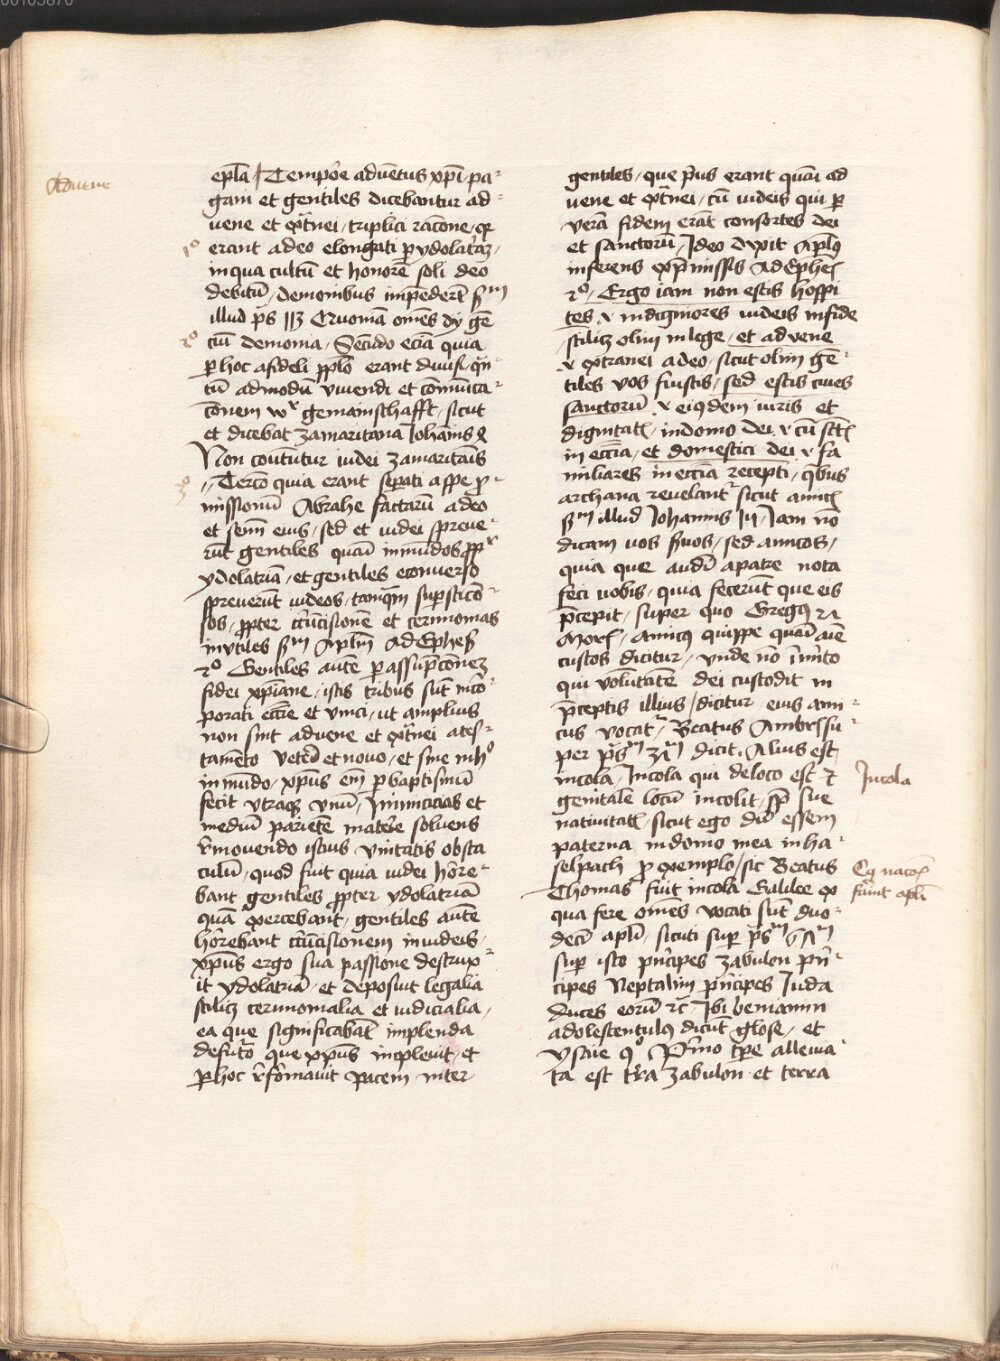 00103870
Aduene
epl̄a / Tempor̄e aduētus xp̄i pa-
gani et gentiles dicebantur ad-
uene et ext̄nei / triplici rac̄one / qr
1º erant a deo elongati p ydolatriaz
in qua cultū et honorē soli deo
debitū / demonibus impederēt scdm
illud ps Quoniā om̄es dij gē-
2º ciū demonia / Secūdo ecia quia
p hoc a fideli pplo erant diuisi / qn-
tū ad modū viuendi et cōmuica-
cōnem wr gemainschafft / sicut
et dicebat zamaritana Iohānis
Non coutūtur iudei zamaritāis
3º Tercō quia erant sepati a spe p-
missionū Abrahe factarū a deo
et semi eius / sed et iudei spreue-
rūt gentiles quasi inmūdos ppr
ydolatriā / et gentiles econuerso
spreuerūt iudeos / tamqm supsticō-
sos / ppter circūcisionē et cerimonias
invtiles scdm Aplm Ad Ephes
2º Gentiles autē p assūpcōnez
fidei xp̄iane / istis tribus sūt inco-
porati eccīe et vnici / ut amplius
non sint aduene et ext̄nei a tes-
tamēto veteri et nouo / et sine
in mūdo / xp̄us em̄ p baptismū
fecit vtraqz vnū / Inimicicias et
mediū parietē materie soluens
remouendo istius vnitatis obsta
culū / quod fuit quia iudei horre-
bant gentiles ppter ydolatriā
quā exercebant / gentiles autē
horrebant circūcisionem in iudeis
xp̄us ergo sua passione destrux-
it ydolatriā / et deposuit legalia
scilicz cerimonialia et iudicialia /
ea que significabāt implenda
de futuro que xp̄us impleuit / et
p hoc reformauit pacem inter
gentiles / que prius erant quasi ad
uene et ext̄nei / cū iudeis qui p
verā fidem erāt consortes dei
et sanctorū / Ideo dixit Aplus
inferens ex p̄missis Ad Ephes
2º / Ergo iam non estis hospi
tes v indigniores iudeis in fide
scilicz olim in lege / et aduene
v extranei a deo / sicut olim gē-
tiles vos fuistis / sed estis ciues
sanctorū v eiusdem iuris et
dignitatis / in domo dei v cū sctis
in eccīa / et domestici dei v fa
miliares in eccīa recepti / qbus
archana reuelant sicut amicis
scdm illud Iohannis Iam nō
dicam uos suos / sed amicos /
quia que audiui a patre nota
feci uobis / quia fecerūt que eis
p̄cepit / super quo Gregoius
Amicus quippe quasi aīe
custos dicitur / vnde nō īm̄ito
qui volūtatē dei custodit in
p̄ceptis illius / dicitur eius ami-
cus vocatur / Beatus Ambrosius su-
per psm dicit / Alius est
incola / Incola qui de loco est et
genitalē locū incolit / spē sue
natiuitatis / sicut ego dū essem
paterna in domo mea in ha-
selpach p exemplo / sic Beatus
Thomas fuit incola Galilee ex
qua fere om̄es vocati sūt duo-
deci apli / sicuti sup psm
sup isto principes zabulon prin-
cipes Neptalim principes Iuda
duces eorū rc̄ Ibi beniamin
adolescentulus dicūt glose / et
ysaie Primo tpe alleuia
ta est tr̄a zabulon et terra
Incola
Ex nacōe
fuerūt apli